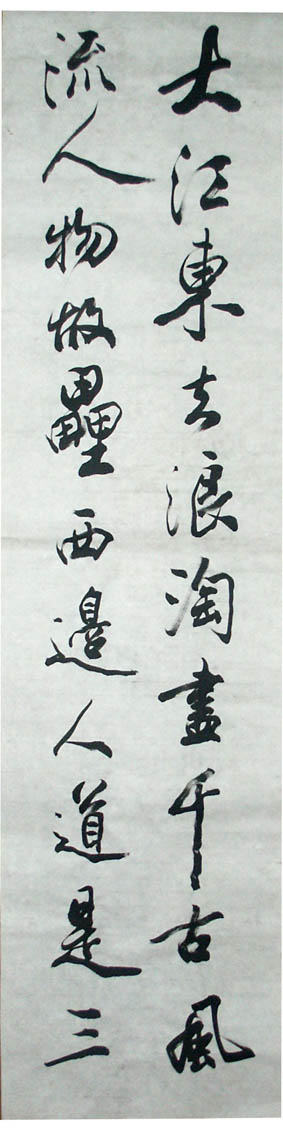 大江東去浪淘盡千古風
流人物故壘西邊人道是三